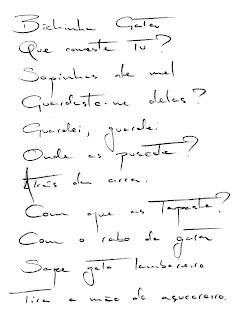 Bichinha Gata
Que comeste Tu?
Sopinhas de mel
Guardaste-me delas?
Guardei, guardei
Onde as puseste?
Atrás da arca.
Com que as Tapaste?
Com o rabo da gata
Sape gato lambareiro
Tira a mão do açucareiro.